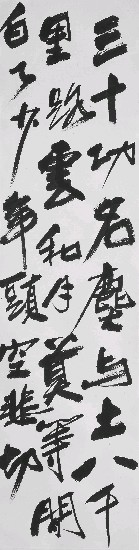 三十功名塵与土八千
里路雲和月莫等閒
白了少年頭空悲切